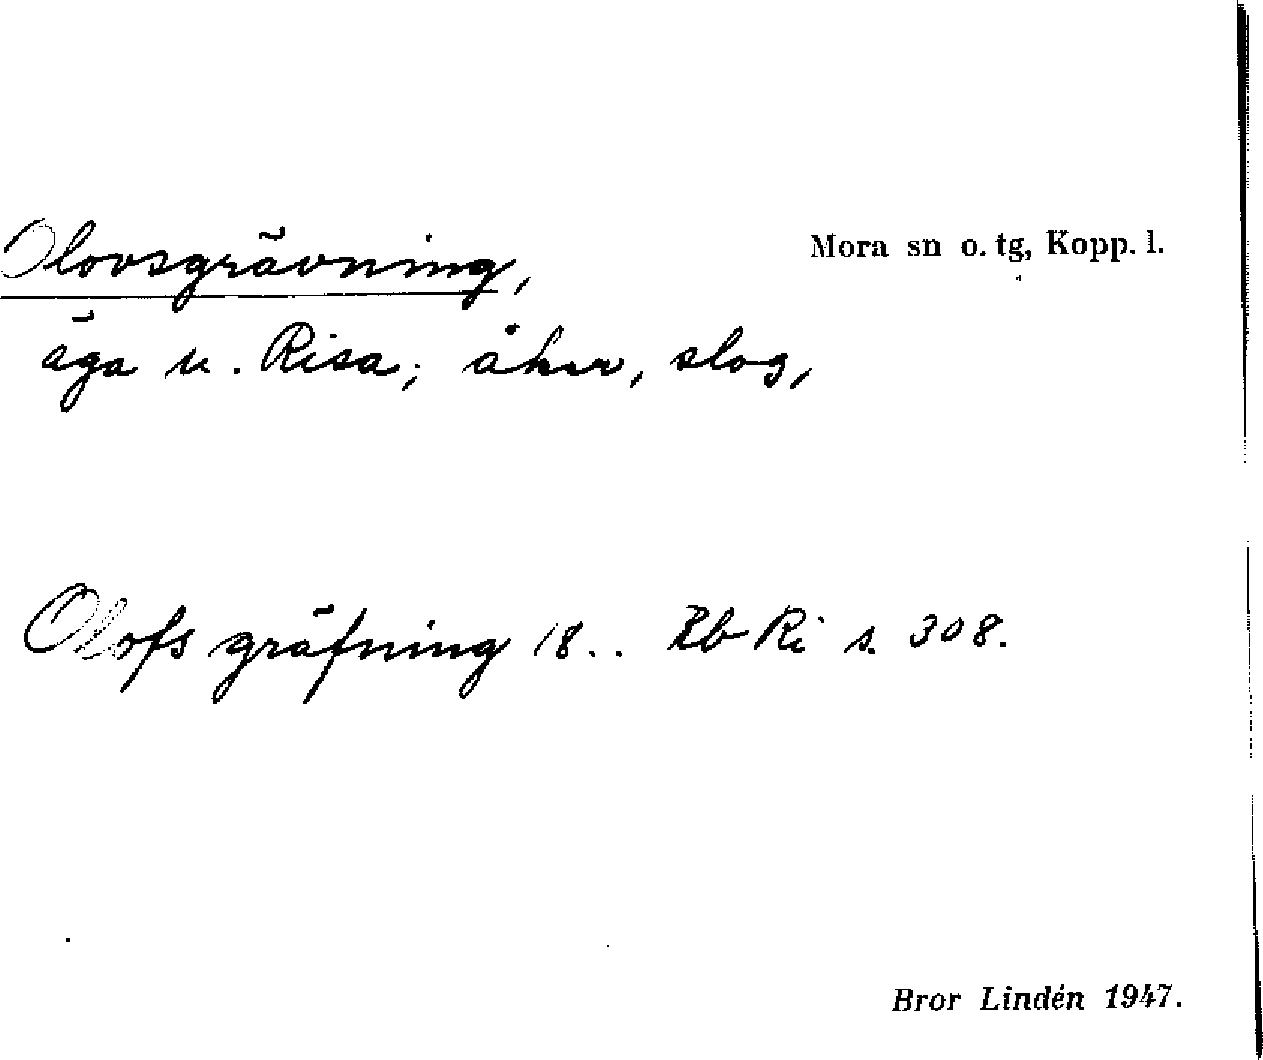 Olovsgrävning,
Mora sn o. tg, Kopp. l.
äga u. Risa; åker, slog,
Olofs gräfning 18.. Rb Ri s. 308.
Bror Lindén 1947.